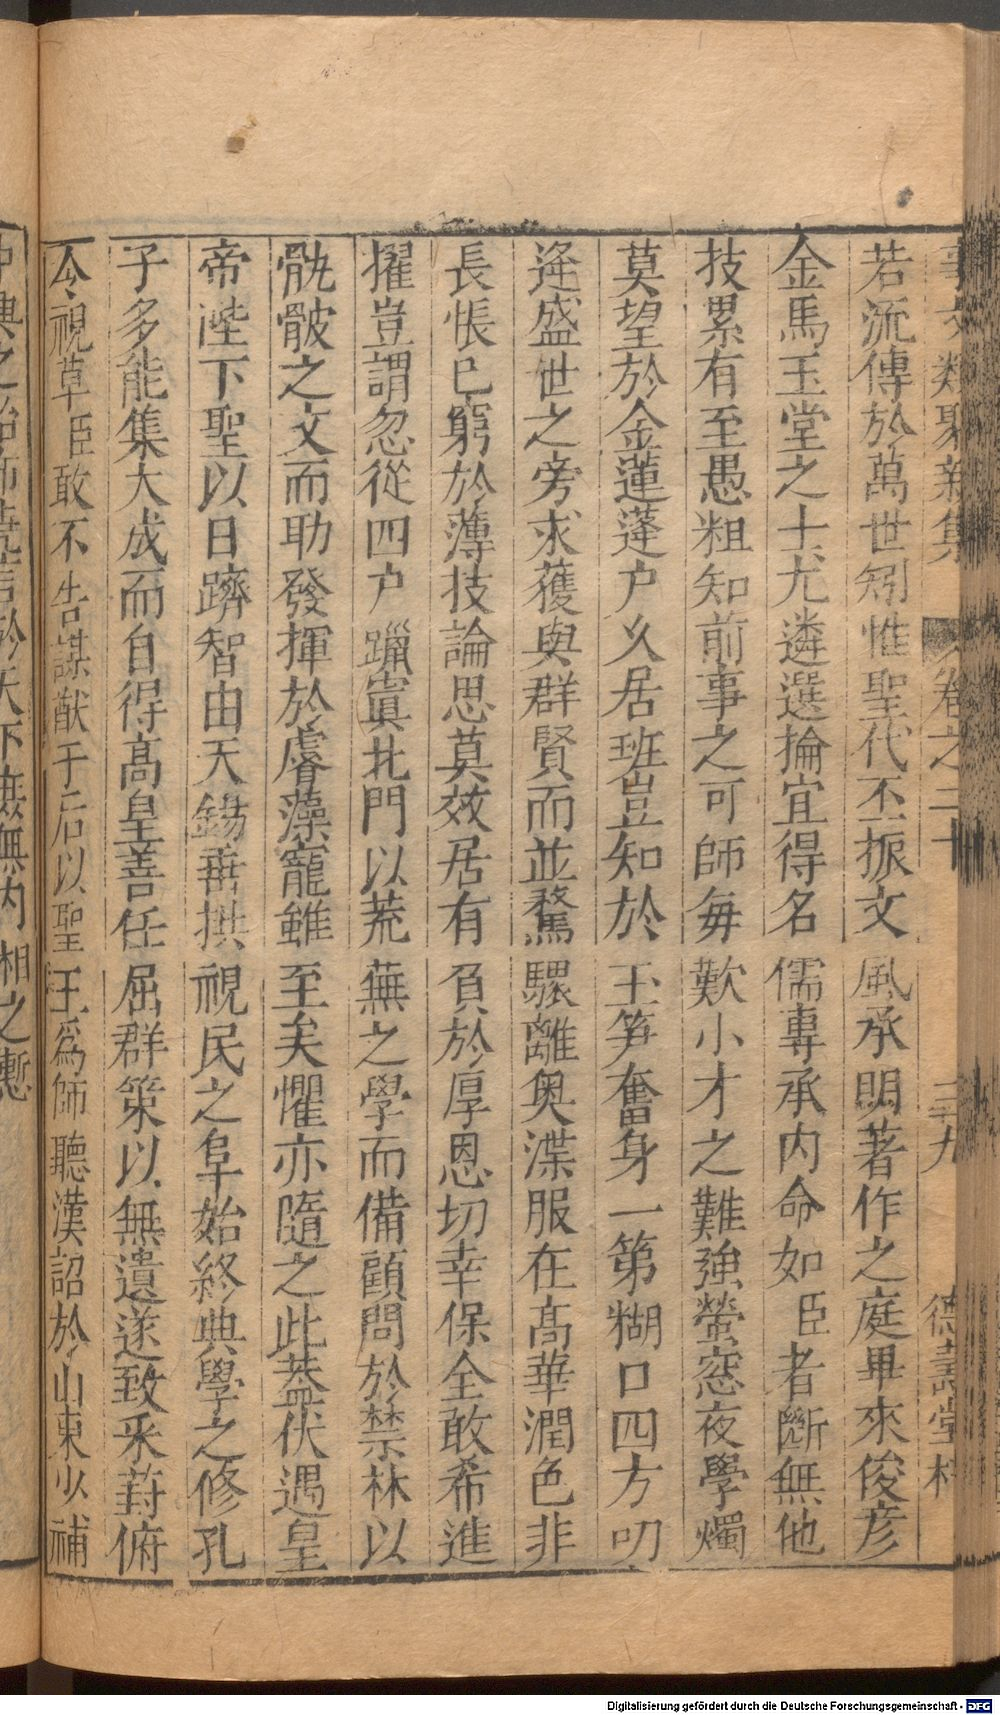 事文類聚新集 卷之二十 三九 德壽堂梓
若流傳於萬世矧惟聖代丕振文風承明著作之庭畢來俊彥
金馬玉堂之士尤遴選掄宜得名儒專承內命如臣者斷無他
技累有至愚粗知前事之可師每歎小才之難強螢窓夜學燭
莫望於金蓮蓬户乆居班豈知於玉笋奮身一第糊口四方叨
逢盛世之旁求獲與群賢而並騖驟離奥渫服在高華潤色非
長悵已窮於薄技論思莫效居有負於厚恩切幸保全敢希進
擢豈謂忽從四户躐寘北門以荒蕪之學而備顧問於禁林以
骫骳之文而助發揮於睿藻寵雖至矣懼亦隨之此蓋伏遇皇
帝陛下聖以日躋智由天錫垂拱視民之阜始終典學之修孔
子多能集大成而自得高皇善任屈群策以無遺遂致采葑俯
今視草臣敢不告謀猷于后以聖王爲師聽漢詔於山東少補
之 於天下庶無內相之慙
Digitalisierung gefördert durch die Deutsche Forschungsgemeinschaft - DFG